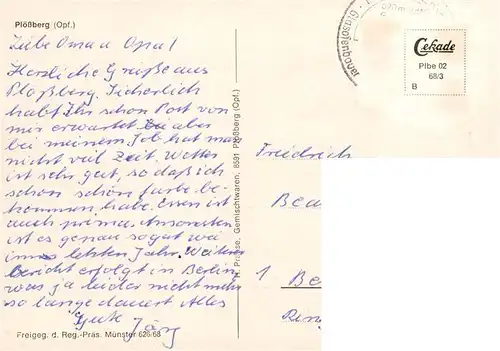 Plößberg (Opf.)
Liebe Oma u Opa!
Herzliche Grüße aus
Ploßberg. Sicherlich
habt Ihr schon Post von
mir erwartet aber
bei meinem Job hat man
nicht viel Zeit. Wetter
ist sehr gut, so daß ich
schon schön farbe be-
kommen habe. Essen ist
auch prima. Ansonsten
ist es genau so gut wie
im letzten Jahr. Weiterer
bericht erfolgt in Berlin,
was ja leider nicht mehr
so lange dauert Alles
Gute Jörg
Freigeg. d. Reg.-Präs. Münster 626/68
H. Preisse, Gemischtwaren, 8591 Plößberg (Opf.)
Glasofenbau
Cekade
Plbe 02
68/3
B
Friedrich
1